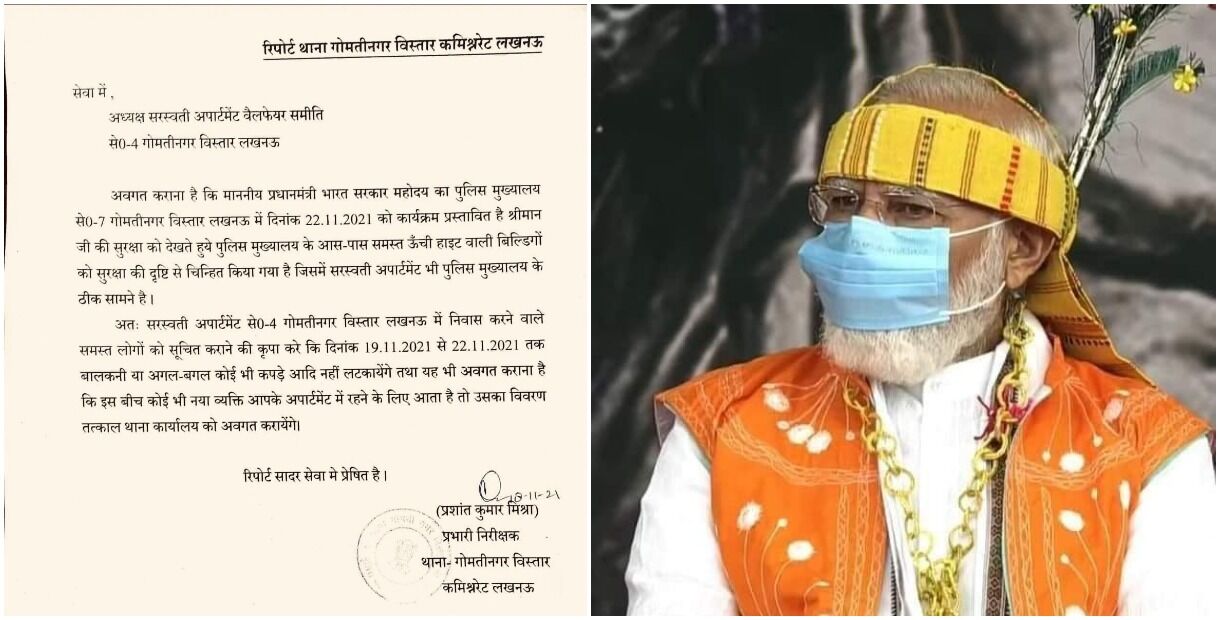 रिपोर्ट थाना गोमतीनगर विस्तार कमिश्नरेट लखनऊ
सेवा में ,
अध्यक्ष सरस्वती अपार्टमेंट वैलफेयर समीति
से0-4 गोमतीनगर विस्तार लखनऊ
अवगत कराना है कि माननीय प्रधानमंत्री भारत सरकार महोदय का पुलिस मुख्यालय
से0-7 गोमतीनगर विस्तार लखनऊ में दिनांक 22.11.2021 को कार्यक्रम प्रस्तावित है श्रीमान
जी की सुरक्षा को देखते हुये पुलिस मुख्यालय के आस-पास समस्त ऊँची हाइट वाली बिल्डिगों
को सुरक्षा की दृष्टि से चिन्हित किया गया है जिसमें सरस्वती अपार्टमेंट भी पुलिस मुख्यालय के
ठीक सामने है।
अतः सरस्वती अपार्टमेंट से0-4 गोमतीनगर विस्तार लखनऊ में निवास करने वाले
समस्त लोगों को सूचित कराने की कृपा करे कि दिनांक 19.11.2021 से 22.11.2021 तक
बालकनी या अगल-बगल कोई भी कपड़े आदि नहीं लटकायेंगे तथा यह भी अवगत कराना है
कि इस बीच कोई भी नया व्यक्ति आपके अपार्टमेंट में रहने के लिए आता है तो उसका विवरण
तत्काल थाना कार्यालय को अवगत करायेंगे।
रिपोर्ट सादर सेवा मे प्रेषित है।
-11-21
(प्रशांत कुमार मिश्रा)
प्रभारी निरीक्षक
थाना- गोमतीनगर विस्तार
कमिश्नरेट लखनऊ